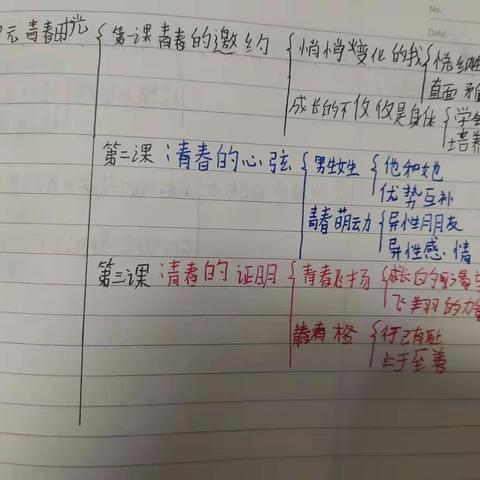 No.
Date
元青春时光
第一课青春的邀约
悄悄变化的我
直面矛
成长的不仅仅是身体
学会
培养
第二课:青春的心弦
男生女生
他和她
优势互补
青春萌动
异性朋友
异性感情
第三课:青春的证明
青春飞扬
成长的
飞翔的力量
青春有格
行己有耻
止于至善